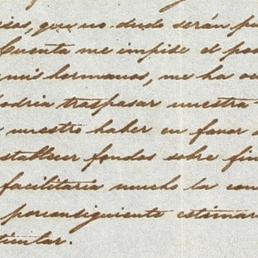 que no dudo serán
Cuenta me impide el
mis hermanos, me ha
traspasar nuestra
nuestro haber en favor
establecer fondos sobre
facilitaria mucho la
porconsiguiente
ticular.